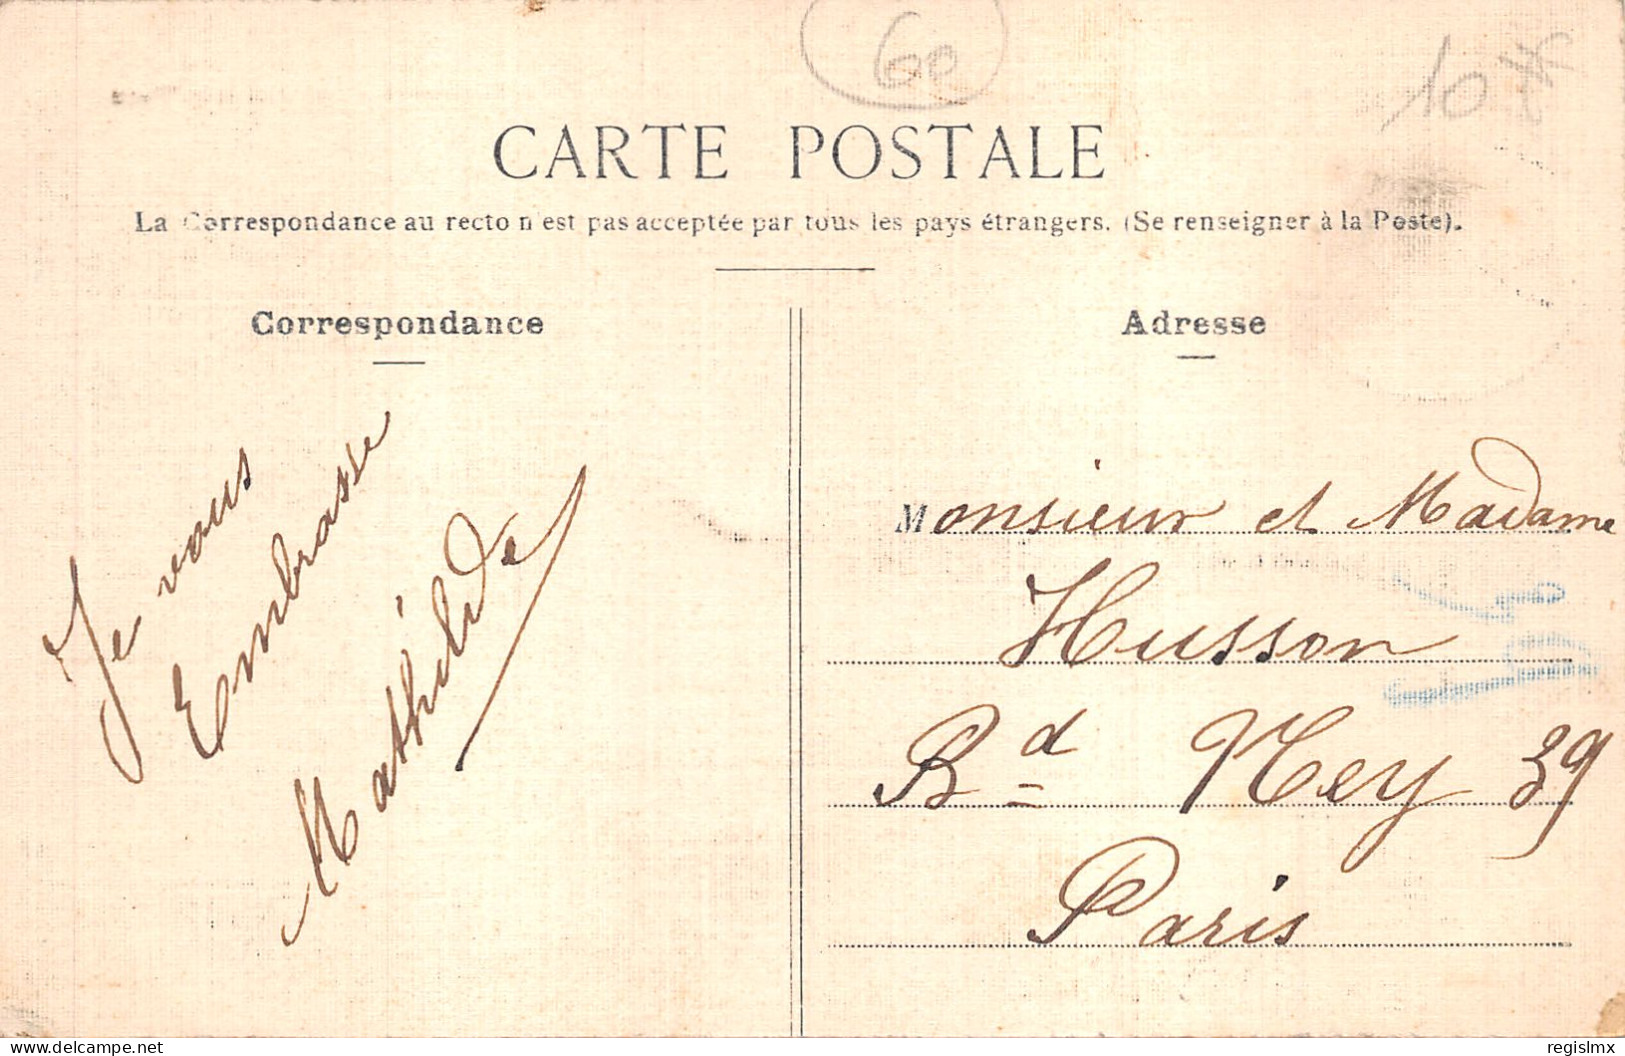 60
10
CARTE POSTALE
La Correspondance au recto n'est pas acceptée par tous les pays étrangers. (Se renseigner à la Poste).
Correspondance
Je vous
Embrasse
Mathilde
Adresse
Monsieur et Madame
Husson
Bd Ney 39
Paris
delcampe.net
regislmx